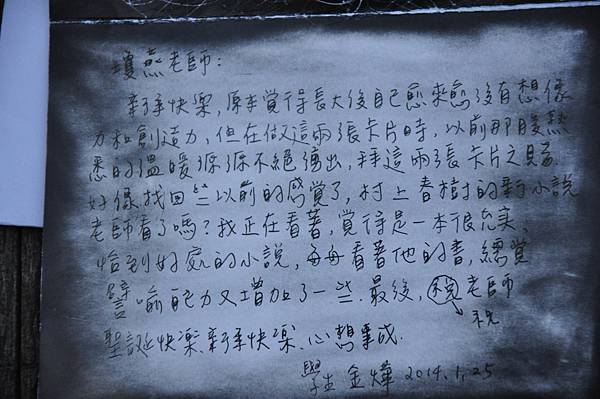 瓊燕老師:
新年快樂,原本覺得長大後自己愈來愈沒有想像
力和創造力,但在做這兩張卡片時,以前那股熟
悉的溫暖源源不絕湧出,拜這兩張卡片之賜
好像找回些以前的感覺了,村上春樹的新小說
老師看了嗎?我正在看著,覺得是一本很充實、
恰到好處的小說,每每看著他的書,總覺
譬喻能力又增加了一些.最後,祝老師
祝
聖誕快樂、新年快樂、心想事成.
學生 金燁 2014.1.25